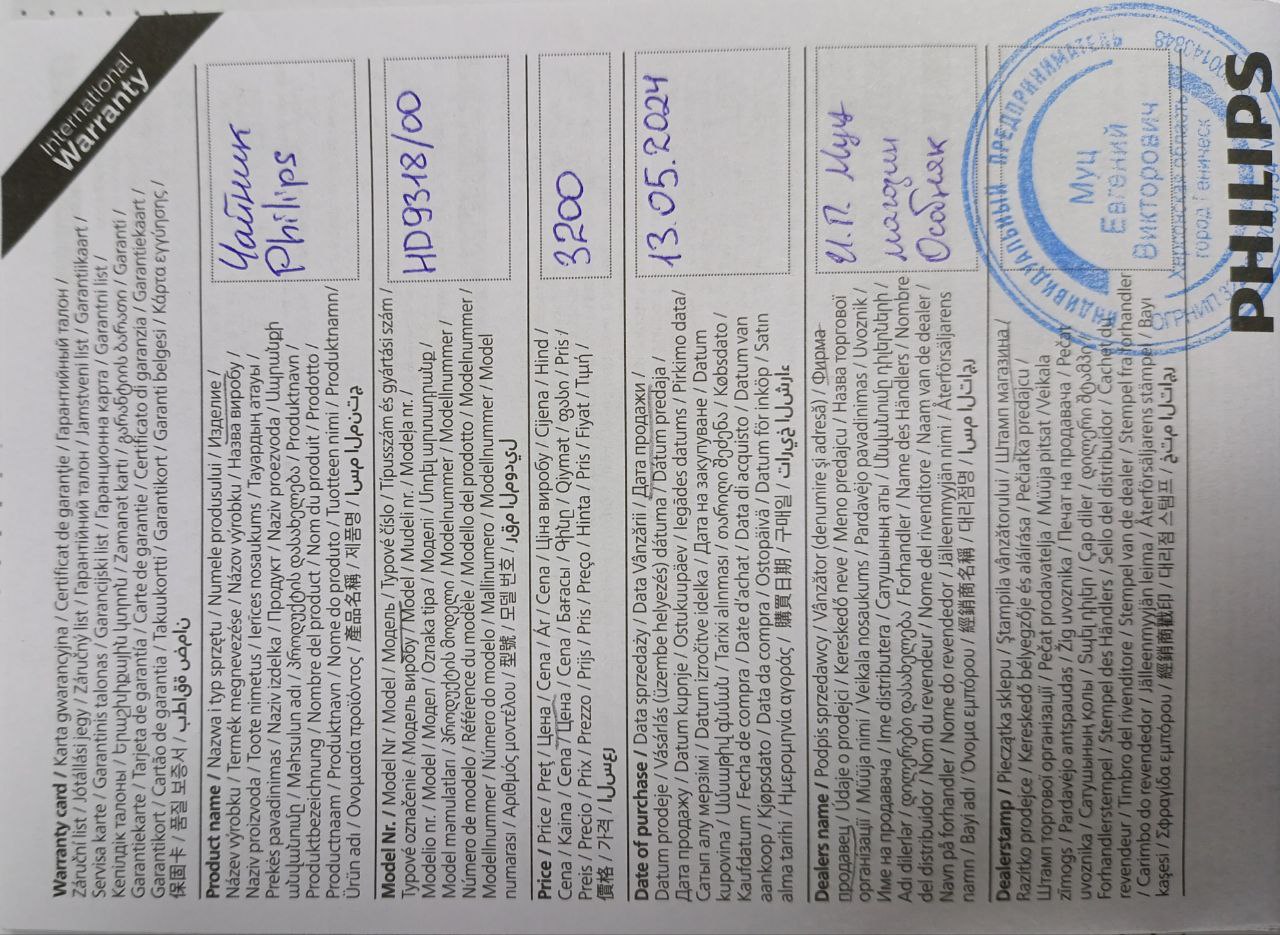 International
Warranty
Warranty card / Karta gwarancyjna / Certificat de garanţie / Гарантийный талон /
Záruční list / Jótállási jegy / Záručný list / Гарантійний талон / Jamstveni list / Garantiikaart /
Servisa karte / Garantinis talonas / Garancijski list / Гаранционна карта / Garantni list /
Кепілдік талоны / Երաշխիքային կտրոն / Zəmanət kartı / გარანტიის ბარათი / Garanti /
Garantiekarte / Tarjeta de garantía / Carte de garantie / Certificato di garanzia / Garantiekaart /
Garantikort / Cartão de garantia / Takuukortti / Garantikort / Garanti belgesi / Κάρτα εγγύησης /
保固卡 / 품질 보증서 / بطاقة ضمان
Product name / Nazwa i typ sprzętu / Numele produsului / Изделие /
Název výrobku / Termék megnevezése / Názov výrobku / Назва виробу /
Naziv proizvoda / Toote nimetus / Ierīces nosaukums / Тауардың атауы /
Prekės pavadinimas / Naziv izdelka / Продукт / Naziv proezvoda / Ապրանքի
անվանումը / Məhsulun adı / პროდუქტის დასახელება / Produktnavn
Produktbezeichnung / Nombre del product / Nom du produit / Prodotto /
Productnaam / Produktnavn / Nome do produto / Tuotteen nimi / Produktnamn /
Ürün adı / Ονομασία προϊόντος / 產品名稱 / 제품명 / اسم المنتج
Чайник
Philips
Model Nr. / Model Nr / Model / Модель / Typové číslo / Típusszám és gyártási szám /
Typové označenie / Модель виробу / Model / Mudeli nr. / Modeļa nr. /
Modelio nr. / Model / Модел / Oznaka tipa / Моделі / Մոդելի
Model məmulatları / პროდუქტის მოდელი / Modelnummer / Modellnummer /
Número de modelo / Référence du modèle / Modello del prodotto / Modelnummer /
Modellnummer / Número do modelo / Mallinumero / Modellnummer / Model
numarası / Αριθμός μοντέλου / 型號 / 모델 번호 / رقم الموديل
HD9318/00
Price / Price / Preţ / Цена / Cena / Ár / Cena / Ціна виробу / Cijena / Hind /
Cena / Kaina / Cena / Цена / Cena / Бағасы / Գինը / Qiymət / ფასი / Pris /
Preis / Precio / Prix / Prezzo / Prijs / Pris / Preço / Hinta / Pris / Fiyat / Τιμή /
價格 / 가격 / السعر
3200
Date of purchase / Data sprzedaży / Data Vânzării / Дата продажи /
Datum prodeje / Vásárlás (üzembe helyezés) dátuma / Dátum predaja /
Дата продажу / Datum kupnje / Ostukuupäev / Iegādes datums / Pirkimo data /
Сатып алу мерзімі / Datum izročitve idelka / Дата на закупуване / Datum
kupovina / Ամսաթիվ գնման / Tarixi alınması / თარიღი შეძენა / Købsdato /
Kaufdatum / Fecha de compra / Date d'achat / Data di acquisto / Datum van
aankoop / Kjøpsdato / Data da compra / Ostopäivä / Datum för inköp / Satın
alma tarihi / Ημερομηνία αγοράς / 購買日期 / 구매일 / تاريخ الشراء
13.05.2024
Dealers name / Podpis sprzedawcy / Vânzător (denumire şi adresă) / Фирма-
продавец / Údaje o prodejci / Kereskedő neve / Meno predajcu / Назва торгової
організації / Müüja nimi / Veikala nosaukums / Pardavėjo pavadinimas / Uvoznik /
Име на продавача / Ime distributera / Сатушының аты / Անվանում դիլերների /
Adı dilerlər / დილერები დასახელება / Forhandler / Name des Händlers / Nombre
del distribuidor / Nom du revendeur / Nome del rivenditore / Naam van de dealer /
Navn på forhandler / Nome do revendedor / Jälleenmyyjän nimi / Återförsäljarens
namn / Bayi adı / Όνομα εμπόρου / 經銷商名稱 / 대리점명 / اسم التاجر
И.П. Муц
магазин
Особняк
Dealerstamp / Pieczątka sklepu / Ştampila vânzătorului / Штамп магазина /
Razítko prodejce / Kereskedő bélyegzője és aláírása / Pečiatka predajcu /
Штамп торгової організації / Pečat prodavatelja / Müüja pitsat / Veikala
zīmogs / Pardavėjo antspaudas / Žig uvoznika / Печат на продавача / Pečat
uvoznika / Сатушының колы / Կնիք դիլեր / Çap diler / დილერი ბეჭედი
Forhandlerstempel / Stempel des Händlers / Sello del distribuidor / Cachet du
revendeur / Timbro del rivenditore / Stempel van de dealer / Stempel fra forhandler
/ Carimbo do revendedor / Jälleenmyyjän leima / Återförsäljarens stämpel / Bayi
kaşesi / Σφραγίδα εμπόρου / 經銷商戳印 / 대리점 스탬프 / ختم التاجر
ИНДИВИДУАЛЬНЫЙ ПРЕДПРИНИМАТЕЛЬ
Муц
Евгений
Викторович
Херсонская область
город Геническ
ОГРНИП
PHILIPS